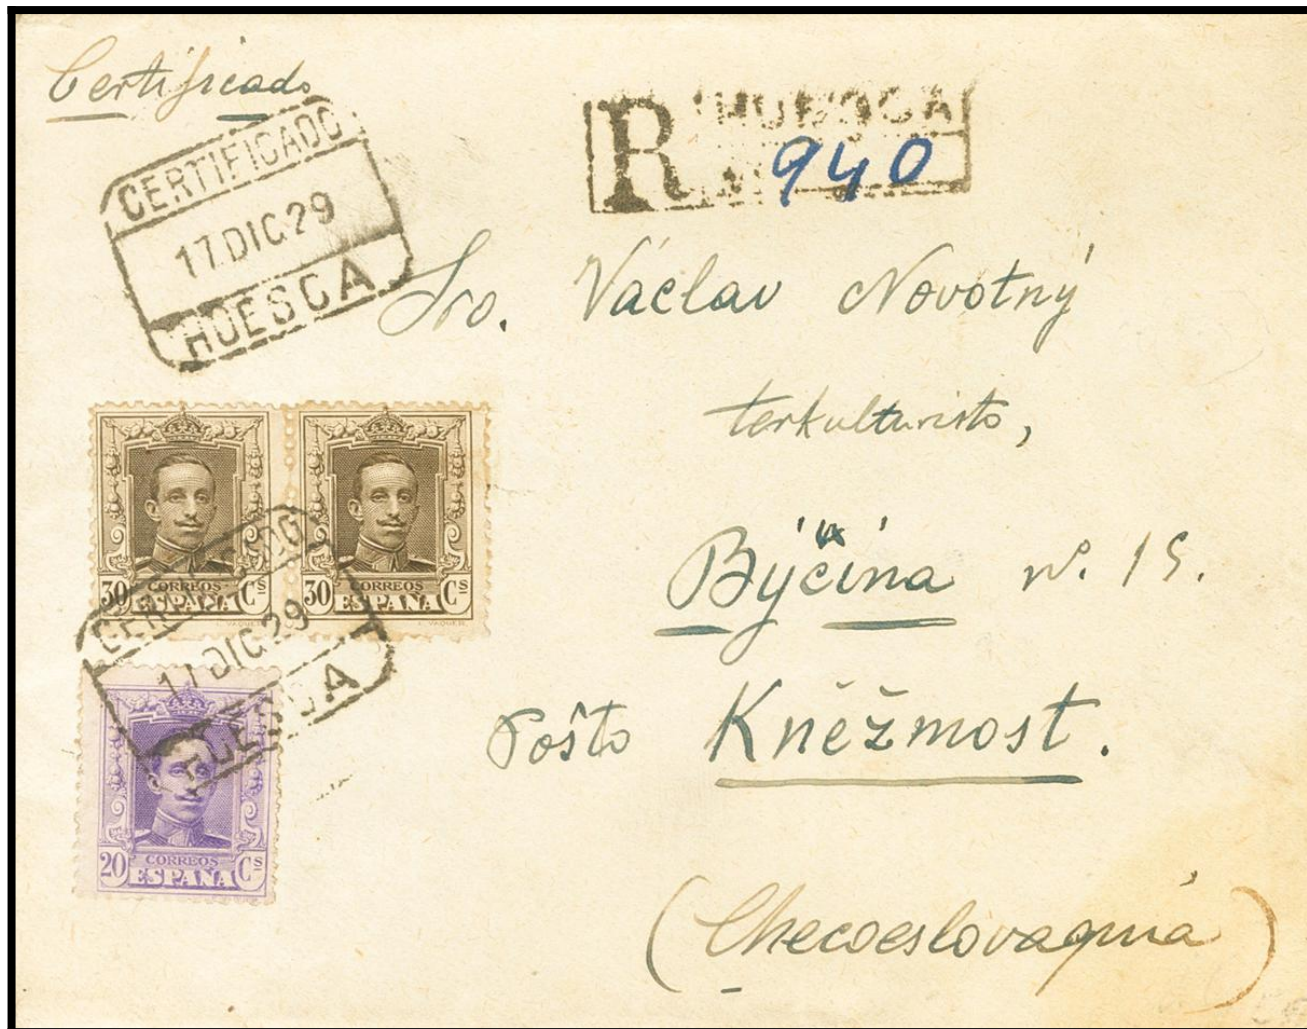 Certificado
CERTIFICADO
17 DIC 29
HUESCA
R HUESCA
940
Sro. Václav Novotný
terkulturisto,
Býčina n. 15.
Poŝto Kněžmost.
(Checoeslovaquiá)
30 CORREOS ESPAÑA Cs
30 CORREOS ESPAÑA Cs
L. VAQUER
CERTIFICADO
17 DIC 29
HUESCA
20 CORREOS ESPAÑA Cs